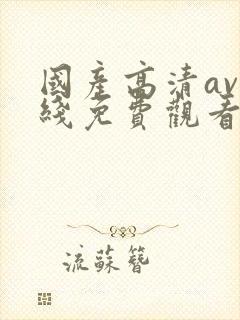 國產高清av
綫免費觀看
流蘇簪